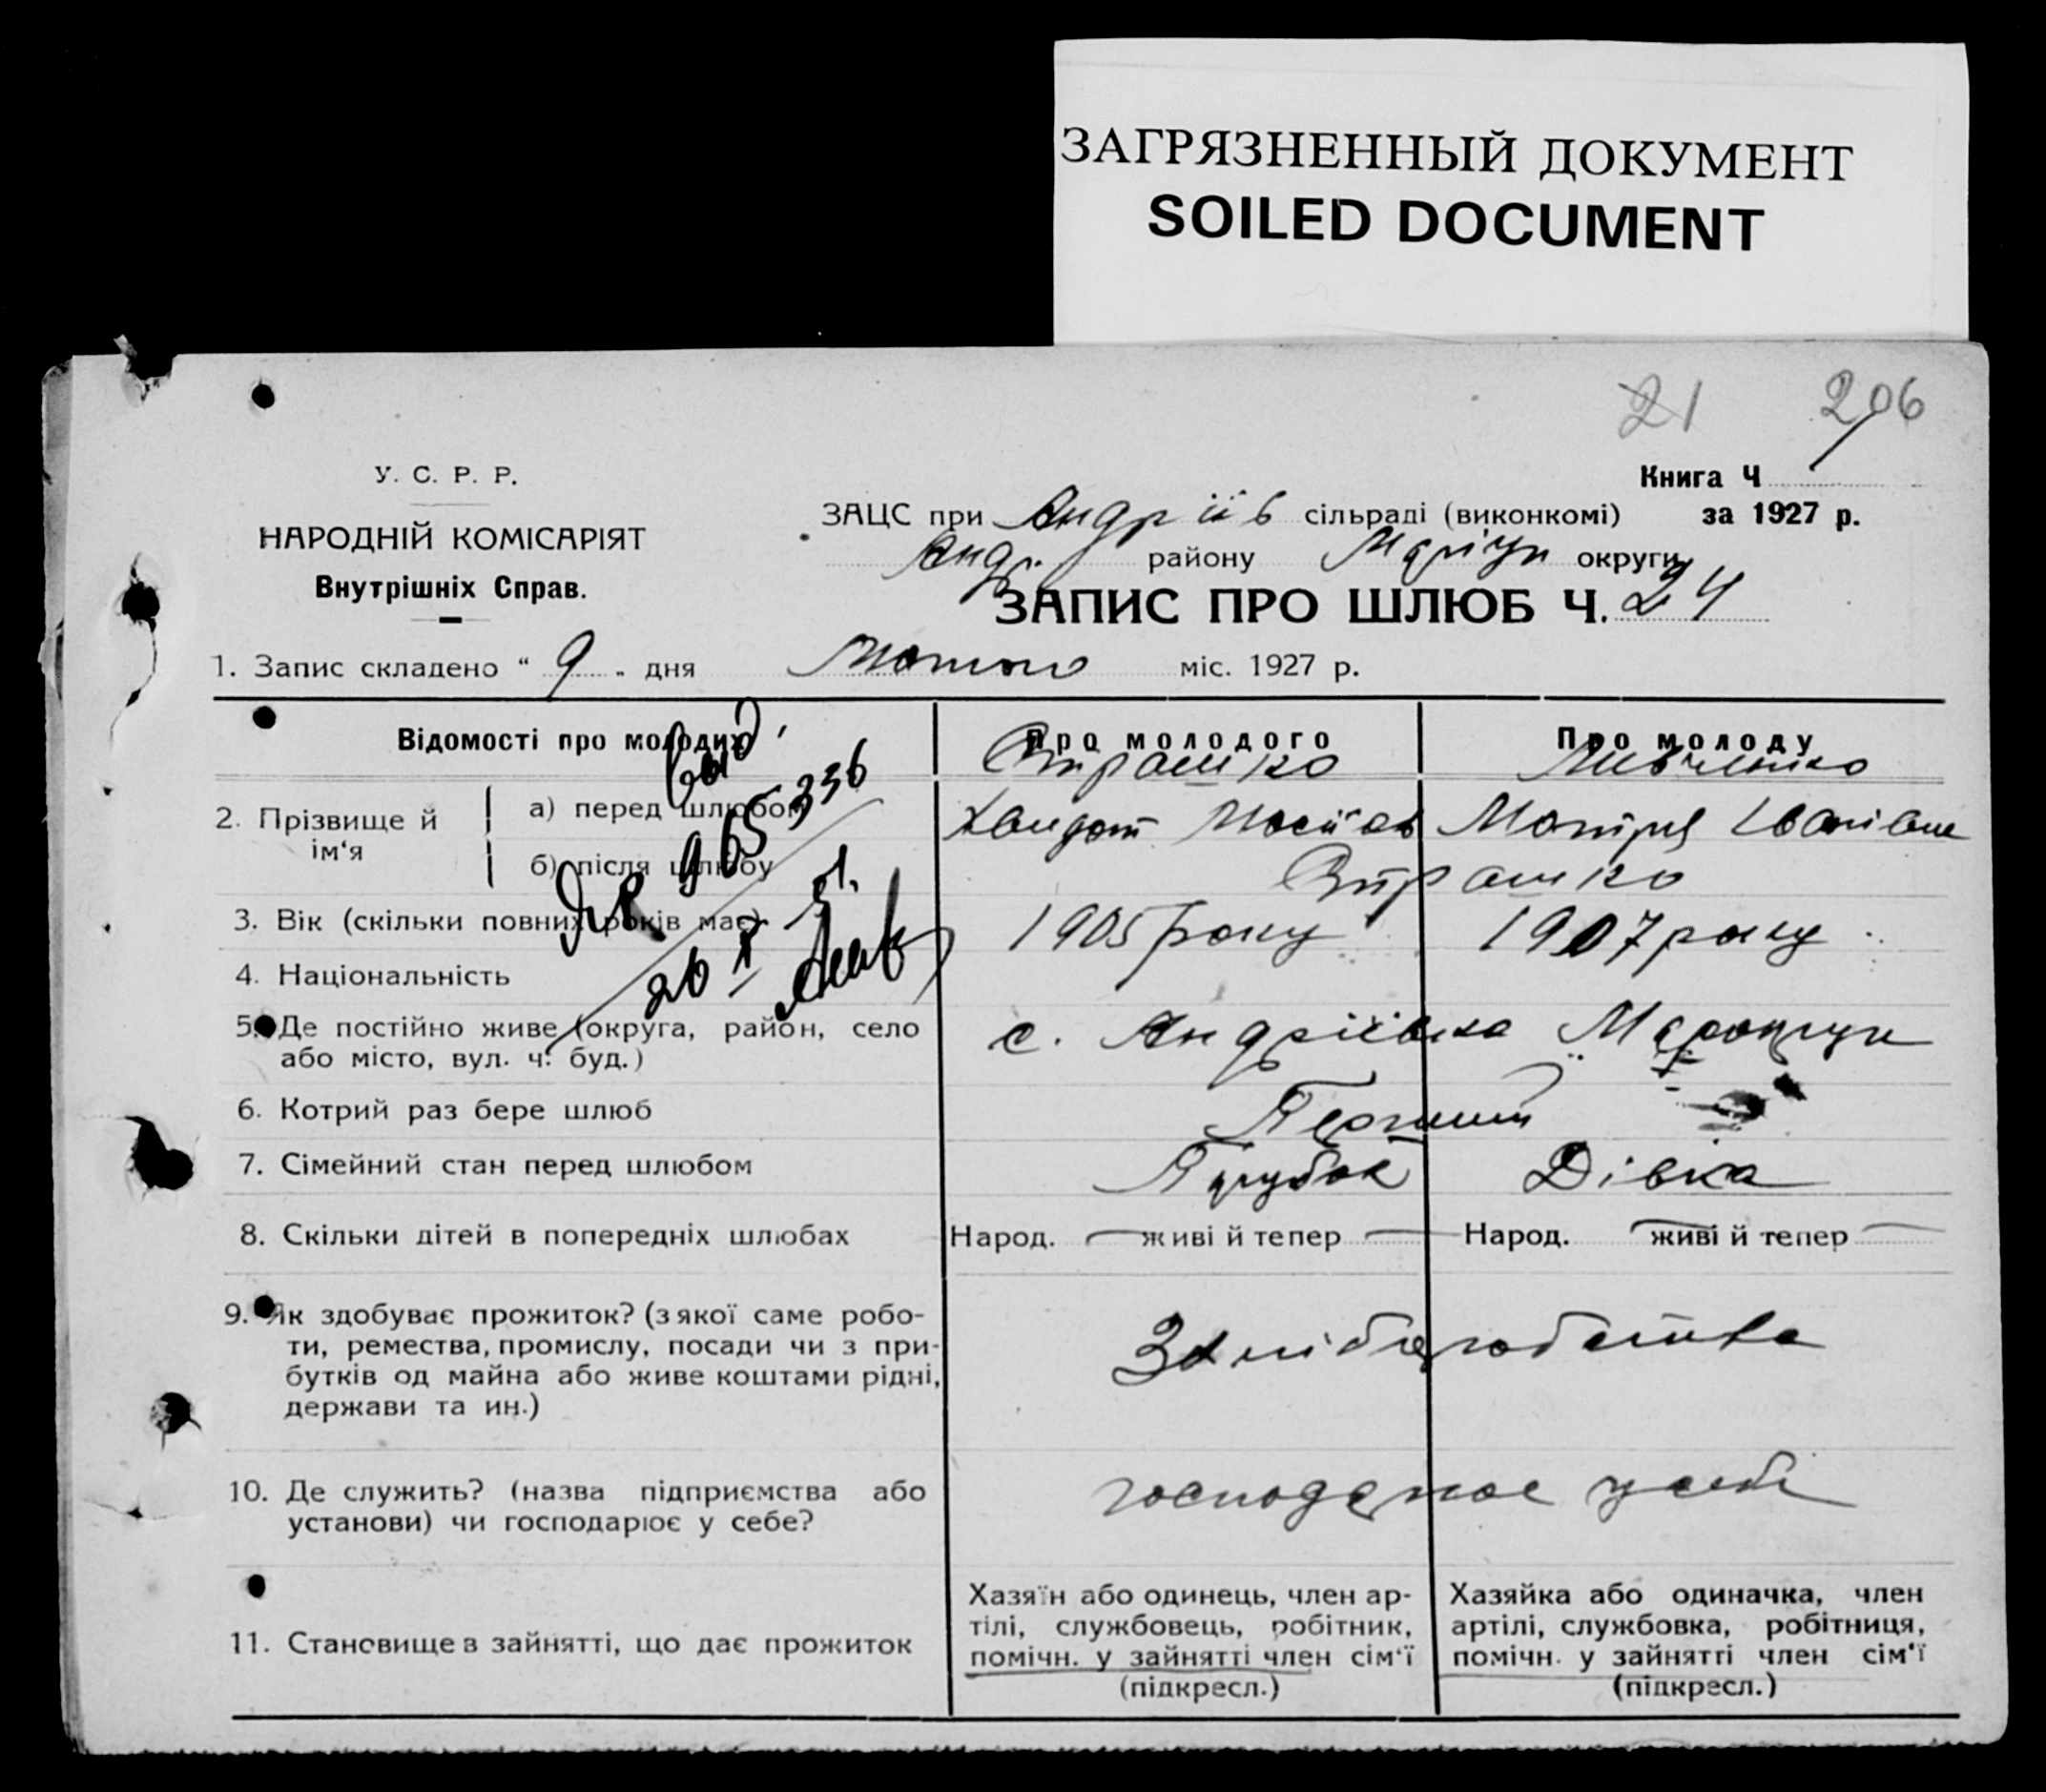 ЗАГРЯЗНЕННЫЙ ДОКУМЕНТ
SOILED DOCUMENT
21 206
У. С. Р. Р.
НАРОДНІЙ КОМІСАРІЯТ
Внутрішніх Справ.
Книга Ч
ЗАЦС при Андріїв сільраді (виконкомі) за 1927 р.
Андр. району Маріуп округи
ЗАПИС ПРО ШЛЮБ Ч. 24
1. Запис складено “ 9 „ дня Лютого міс. 1927 р.
Відомості про молодих
Про молодого
Про молоду
2. Прізвище й ім‘я
а) перед шлюбом
Мотря Іванівна
б) після шлюбу
3. Вік (скільки повних років має)
1905 року
1907 року
4. Національність
5. Де постійно живе (округа, район, село
або місто, вул. ч. буд.)
с. Андріївка
6. Котрий раз бере шлюб
Перший
7. Сімейний стан перед шлюбом
Парубок
Дівка
8. Скільки дітей в попередніх шлюбах
Народ. — живі й тепер —
Народ. — живі й тепер —
9. Як здобуває прожиток? (з якої саме робо-
ти, ремества, промислу, посади чи з при-
бутків од майна або живе коштами рідні,
держави та ин.)
10. Де служить? (назва підприємства або
установи) чи господарює у себе?
господарює у себе
11. Становище в зайнятті, що дає прожиток
Хазяїн або одинець, член ар-
тілі, службовець, робітник,
помічн. у зайнятті член сім‘ї
(підкресл.)
Хазяйка або одиначка, член
артілі, службовка, робітниця,
помічн. у зайнятті член сім‘ї
(підкресл.)
965336